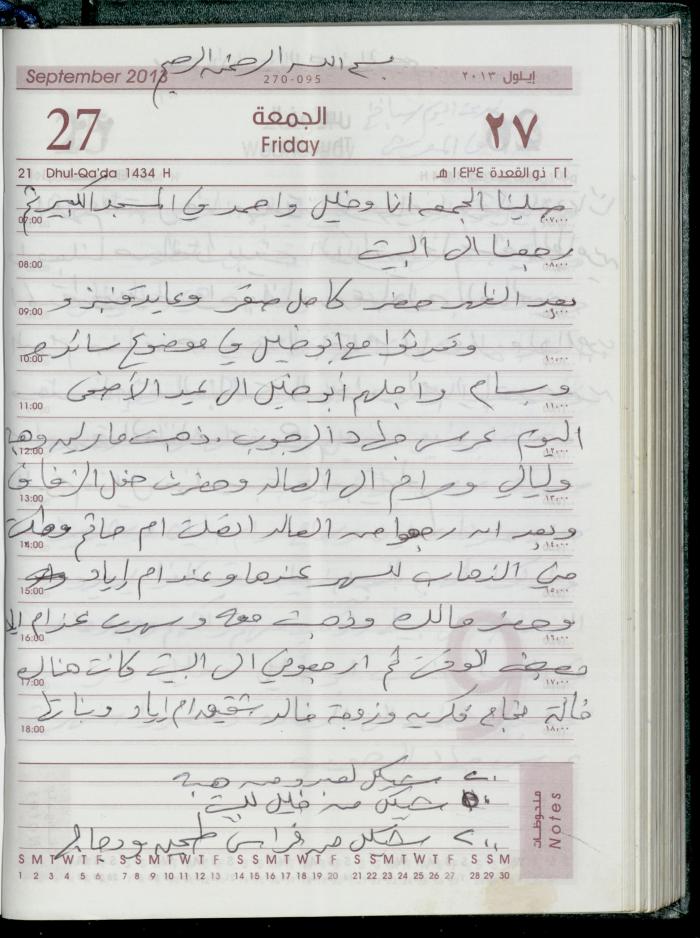 بسم الله الرحمن الرحيم
September 2013
270-095
إيلول ٢٠١٣
27
الجمعة
Friday
٢٧
21 Dhul-Qa'da 1434 H
٢١ ذو القعدة ١٤٣٤ هـ
صلينا الجمعه انا وخليل واحمد في المسجد الكبير ثم
07:00 ٠٧:٠٠
رجعنا الى البيت
08:00 ٠٨:٠٠
بعد الظهر حضر كامل صقر وعايد و
09:00
وتحدثوا مع ابو خليل في موضوع سائد
10:00 ١٠:٠٠
وبسام واجلهم أبو خليل الى عيد الأضحى
11:00 ١١:٠٠
اليوم عرس جلاد الرجوب . ذهبت مارلين وهبه
12:00 ١٢:٠٠
وليالي ومرام الى الصاله وحضرت حفل الزفاف
13:00 ١٣:٠٠
وبعد ان رجعوا من الصاله اتصلت ام حاتم وطلبت
14:00 ١٤:٠٠
مني الذهاب للسهر عندها وعند ام إياد
15:00 ١٥:٠٠
وحضر مالك وذهبت معه وسهرت عند ام
16:00 ١٦:٠٠
الوقت ثم ارجعوني الى البيت كانت هناك
17:00 ١٧:٠٠
خالة نجاح فكريه وزوجة خالد شقيق ام اياد وبناتها
18:00 ١٨:٠٠
٢٠ شيكل من هبه
شيكل من خليل للبيت
٢٠٠ شيكل من فراس
ملحوظات
Notes
S M T W T F S S M T W T F S S M T W T F S S M T W T F S S M
1 2 3 4 5 6 7 8 9 10 11 12 13 14 15 16 17 18 19 20 21 22 23 24 25 26 27 28 29 30